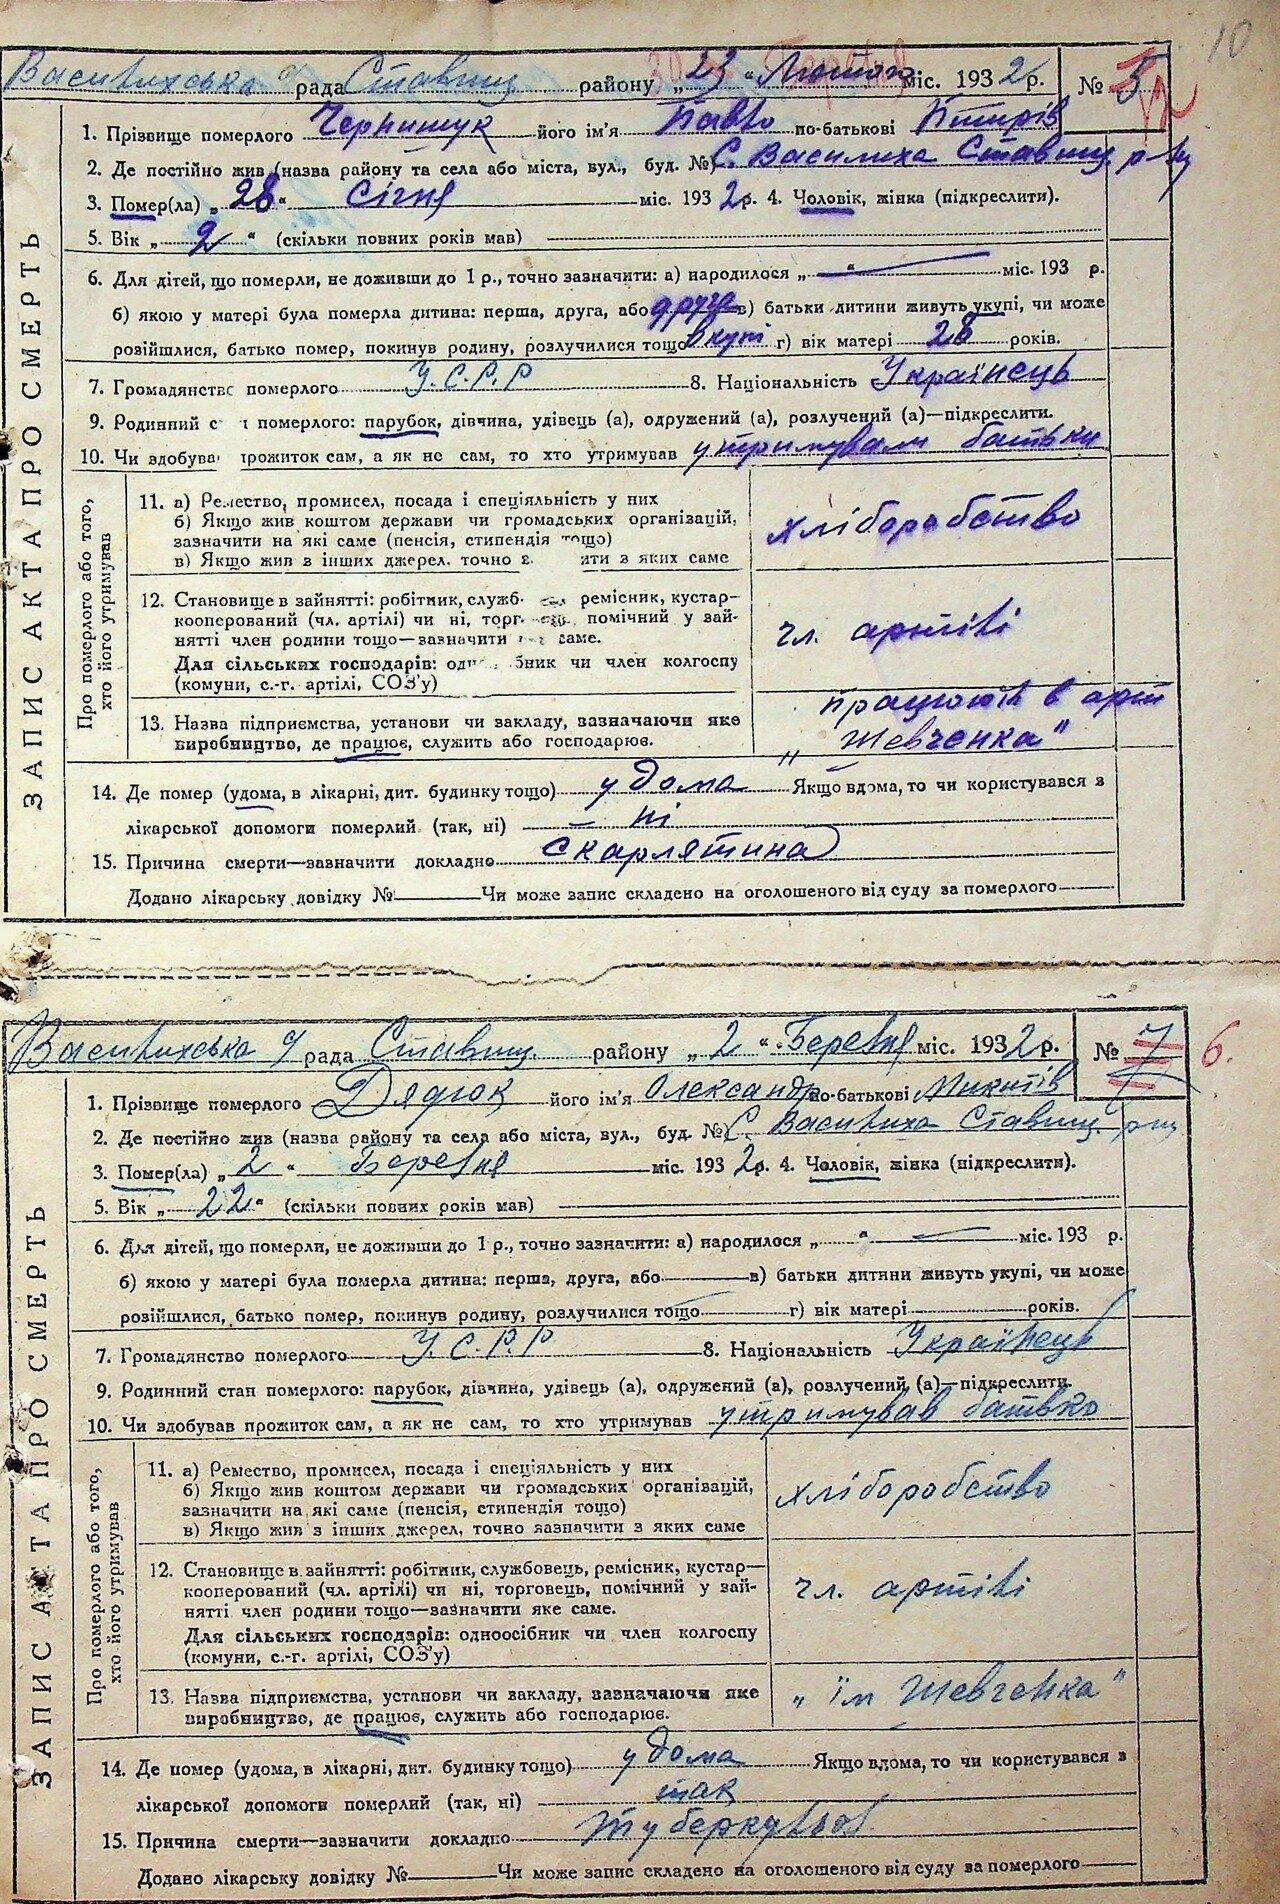 10
Василихська с/ рада Ставищ. району „ 23 “ Лютого міс. 1932 р. № 5
1. Прізвище померлого Чернишук його ім'я Павло по-батькові
2. Де постійно жив (назва району та села або міста, вул., буд. №) С. Василиха Ставищ. р-ну
3. Помер(ла) „ 28 “ Січня міс. 1932 р. 4. Чоловік, жінка (підкреслити).
5. Вік „ 2 “ (скільки повних років мав)
6. Для дітей, що померли, не доживши до 1 р., точно зазначити: а) народилося „ “ міс. 193 р.
б) якою у матері була померла дитина: перша, друга, або друга в) батьки дитини живуть укупі, чи може
розійшлися, батько помер, покинув родину, розлучилися тощо вкупі г) вік матері 28 років.
7. Громадянство померлого У.С.Р.Р 8. Національність Українець
9. Родинний с н померлого: парубок, дівчина, удівець (а), одружений (а), розлучений (а)—підкреслити.
10. Чи здобува прожиток сам, а як не сам, то хто утримував утримували батьки
ЗАПИС АКТА ПРО СМЕРТЬ
Про померлого або того, хто його утримував
11. а) Ремество, промисел, посада і спеціяльність у них
б) Якщо жив коштом держави чи громадських організацій,
зазначити на які саме (пенсія, стипендія тощо)
в) Якщо жив з інших джерел, точно з ити з яких саме
хліборобство
12. Становище в зайнятті: робітник, служб ремісник, кустар-
кооперований (чл. артілі) чи ні, торг помічний у зай-
нятті член родини тощо—зазначити саме.
Для сільських господарів: одн обник чи член колгоспу
(комуни, с.-г. артілі, СОЗ'у)
чл. артілі
13. Назва підприємства, установи чи закладу, зазначаючи яке
виробництво, де працює, служить або господарює.
працюють в арт
„ Шевченка"
14. Де помер (удома, в лікарні, дит. будинку тощо) удома Якщо вдома, то чи користувався з
лікарської допомоги померлий (так, ні) ні
15. Причина смерти—зазначити докладно Скарлятина
Додано лікарську довідку № Чи може запис складено на оголошеного від суду за померлого
Василихська с/ рада Ставищ. району „ 2 “ Березня міс. 1932 р. № 7 6.
1. Прізвище померлого Дядюк його ім'я Олександр по-батькові Микитів
2. Де постійно жив (назва району та села або міста, вул., буд. №) С. Василиха Ставищ. р-ну
3. Помер(ла) „ 2 “ Березня міс. 1932 р. 4. Чоловік, жінка (підкреслити).
5. Вік „ 22 “ (скільки повних років мав)
6. Для дітей, що померли, не доживши до 1 р., точно зазначити: а) народилося „ “ міс. 193 р.
б) якою у матері була померла дитина: перша, друга, або в) батьки дитини живуть укупі, чи може
розійшлися, батько помер, покинув родину, розлучилися тощо г) вік матері років.
7. Громадянство померлого У.С.Р.Р 8. Національність Українець
9. Родинний стан померлого: парубок, дівчина, удівець (а), одружений (а), розлучений (а)—підкреслити.
10. Чи здобував прожиток сам, а як не сам, то хто утримував утримував батько
ЗАПИС АКТА ПРО СМЕРТЬ
Про померлого або того, хто його утримував
11. а) Ремество, промисел, посада і спеціяльність у них
б) Якщо жив коштом держави чи громадських організацій,
зазначити на які саме (пенсія, стипендія тощо)
в) Якщо жив з інших джерел, точно зазначити з яких саме
хліборобство
12. Становище в зайнятті: робітник, службовець, ремісник, кустар—
кооперований (чл. артілі) чи ні, торговець, помічний у зай-
нятті член родини тощо—зазначити яке саме.
Для сільських господарів: одноосібник чи член колгоспу
(комуни, с.-г. артілі, СОЗ'у)
чл. артілі
13. Назва підприємства, установи чи закладу, зазначаючи яке
виробництво, де працює, служить або господарює.
„ їм Шевченка"
14. Де помер (удома, в лікарні, дит. будинку тощо) удома Якщо вдома, то чи користувався з
лікарської допомоги померлий (так, ні) так
15. Причина смерти—зазначити докладно туберкульоз
Додано лікарську довідку № Чи може запис складено на оголошеного від суду за померлого